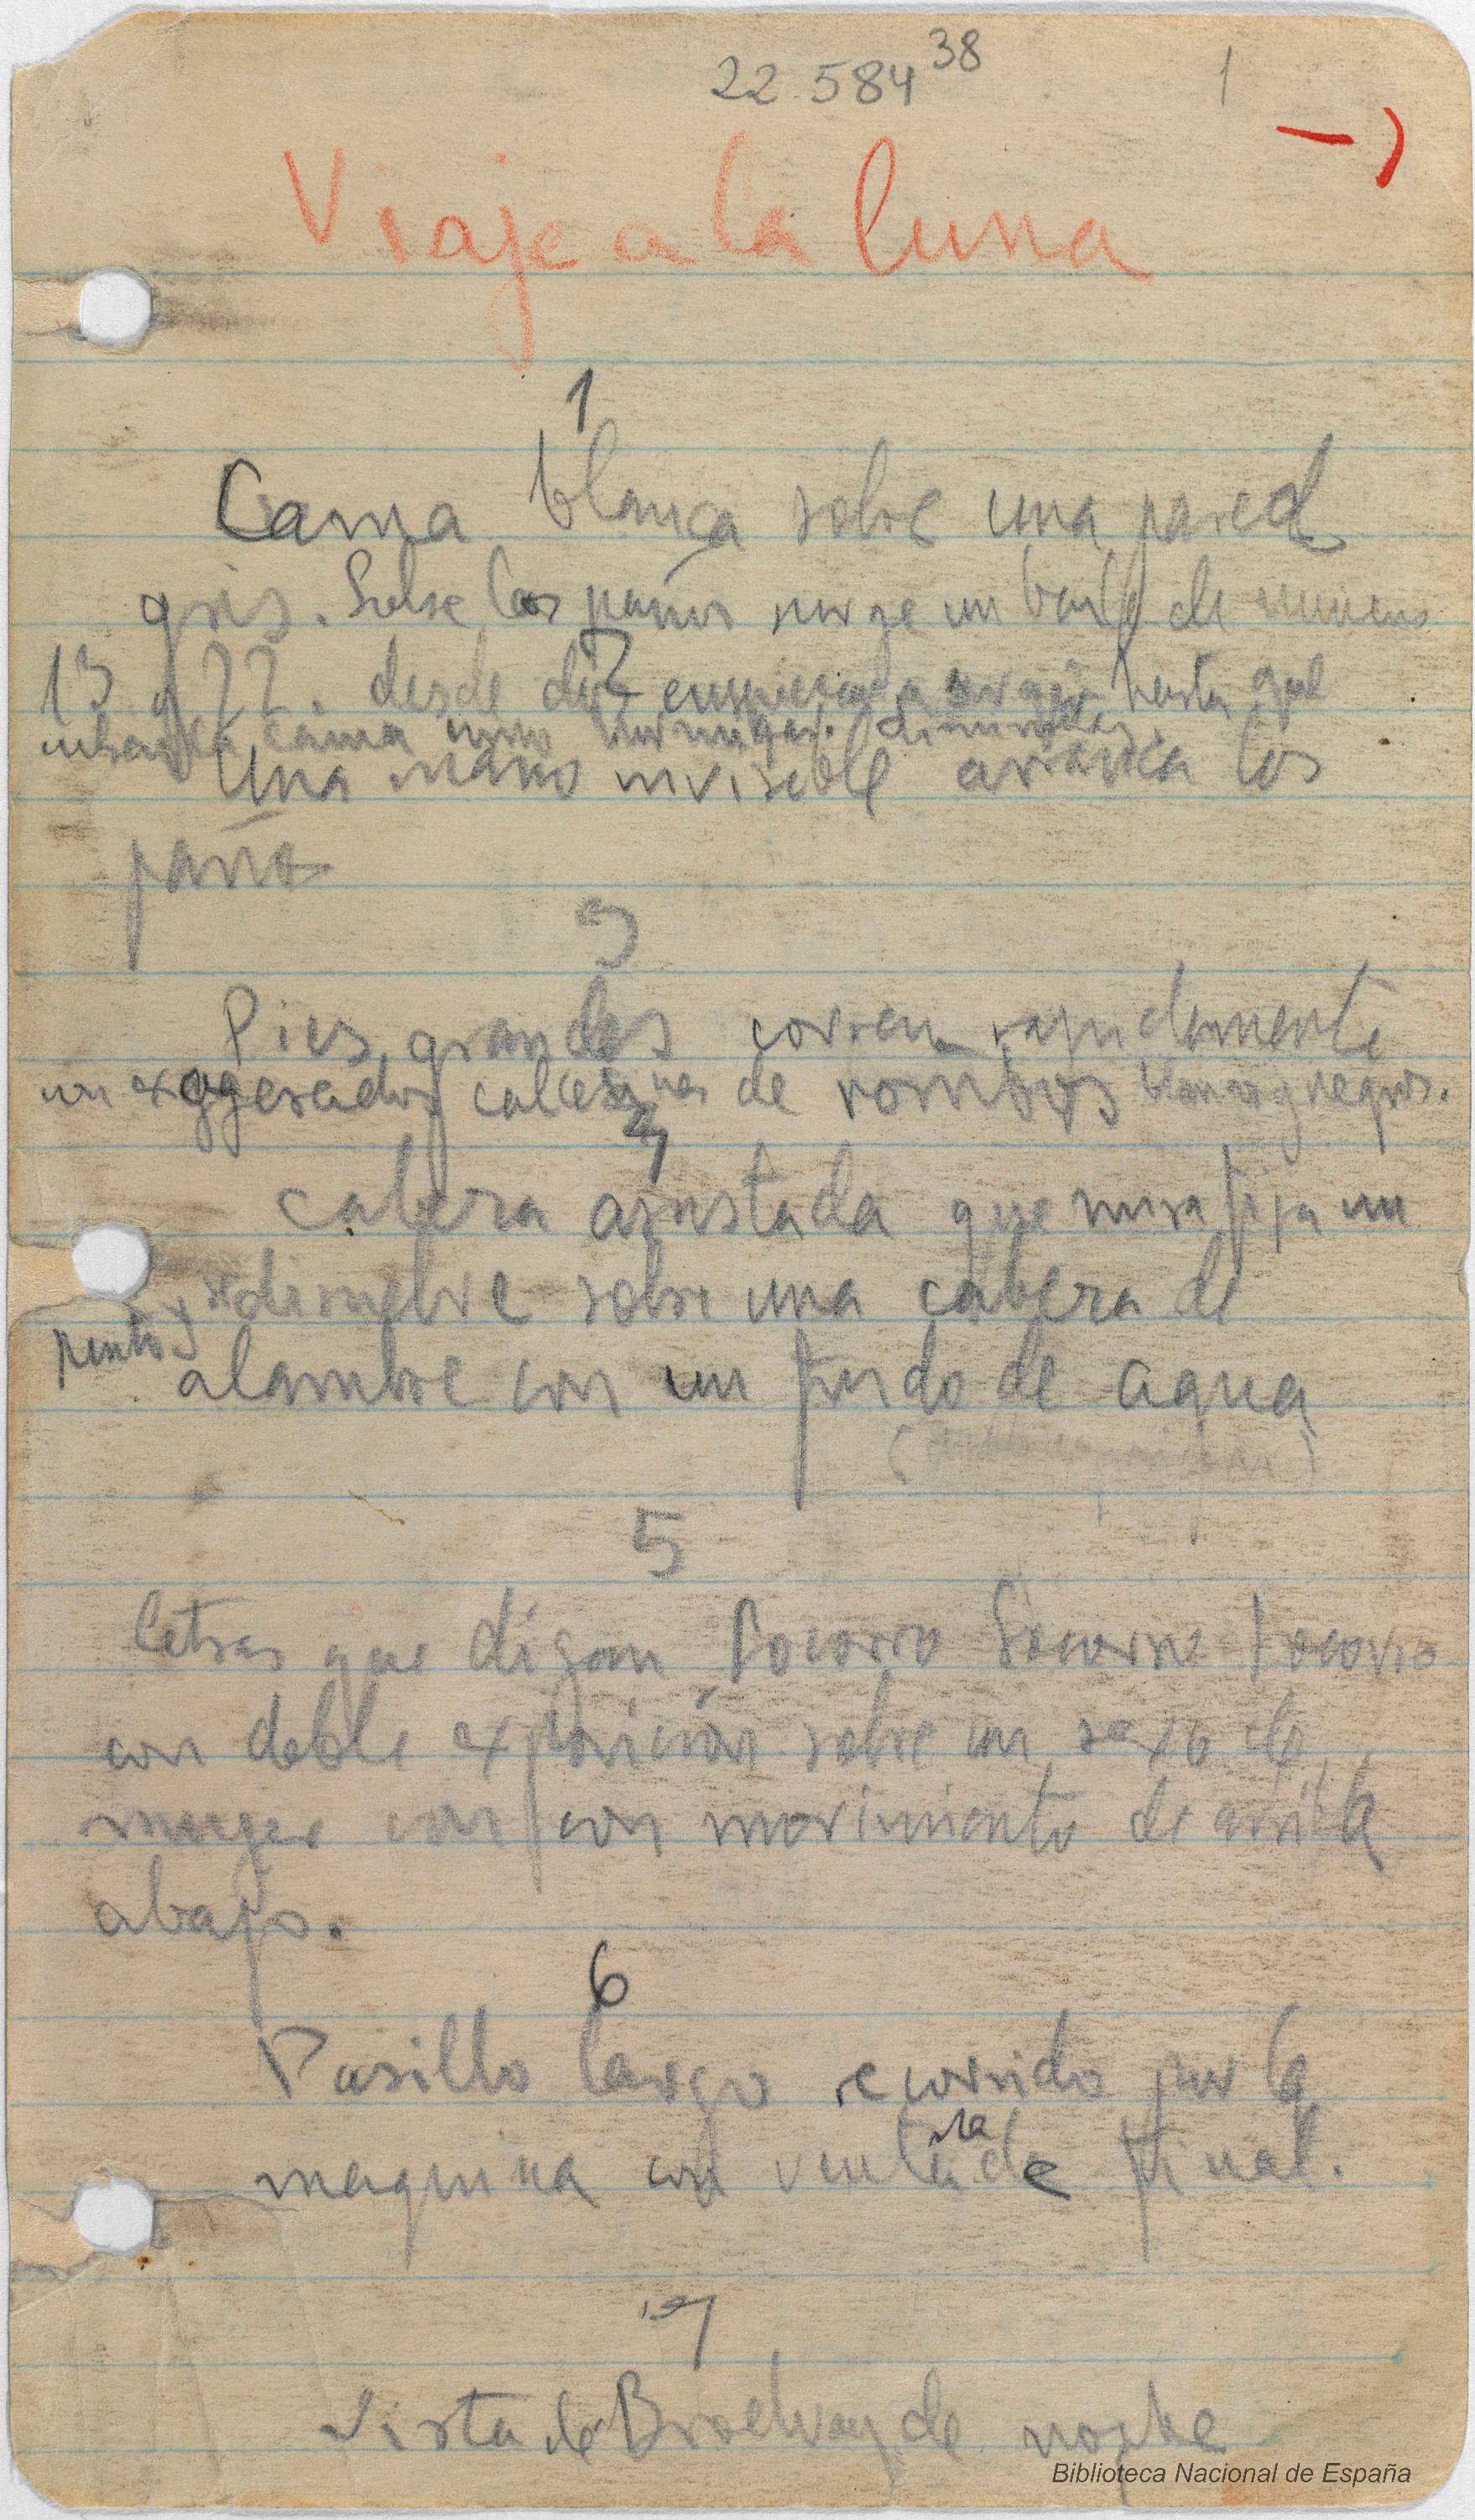 22.584 38
1
Viaje a la luna
1
Cama blanca sobre una pared
gris. Sobre los paños surge un baile de numeros
13 y 22. desde dos empiezan a surgir hasta que
cubran la cama como hormigas diminutas.
2
Una mano invisible arranca los
paños
3
Pies grandes corren rapidamente
con exagerados calcetines de rombos blancos y negros.
4
Cabeza asustada que mira fija un
punto y se disuelve sobre una cabeza de
alambre con un fondo de agua
5
Letras que digan Socorro Socorro Socorro
con doble exposición sobre un sexo de
muger con con movimiento de arriba
abajo.
6
Pasillo largo recorrido por la
maquina con ventana de final.
7
Vista de Broadway de noche
Biblioteca Nacional de España